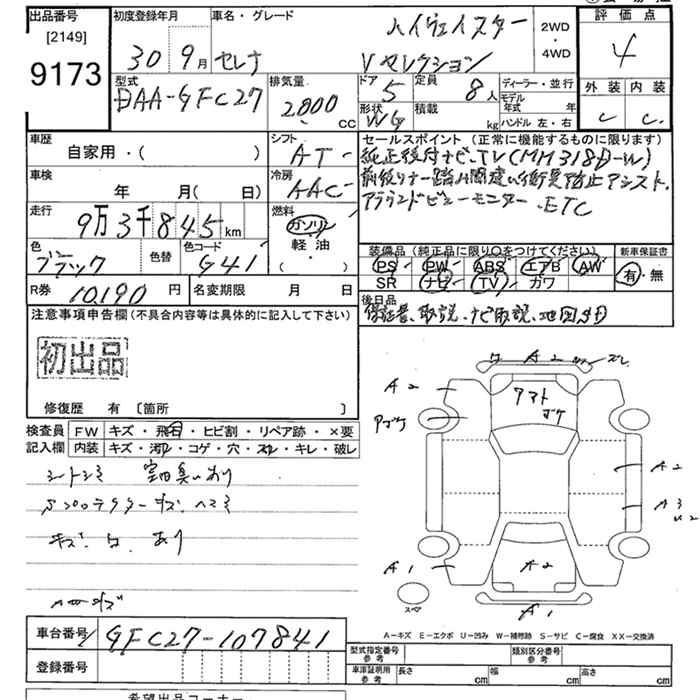 出品番号 初度登録年月 車名・グレード 評価点
[2149]
9173
30年 9月 セレナ ハイウェイスター 2WD ・ 4WD 4
Vセレクション
型式 排気量 ドア 定員 ディーラー・並行 外装 内装
DAA-GFC27 2000 cc 5 8人 モデル年式 年 C C
形状 WG 積載 kg ハンドル 左・右
車歴 シフト セールスポイント (正常に機能するものに限ります)
自家用・( ) AT 純正後付ナビ、TV(MM318D-W)
車検 冷房 前後
年 月( 日) AAC 踏み間違い衝突防止アシスト、
走行 燃料 アラウンドビューモニター、ETC
9万3千845km ガソリン
軽油・
( )
色 色替 色コード 装備品 (純正品に限り〇をつけてください) 新車保証書
ブラック G41 PS PW ABS エアB AW 有・無
SR ナビ TV カワ
R券 10,190円 名変期限 月 日 後日品
保証書、取説、ナビ取説、地図SD
注意事項申告欄(不具合内容等は具体的に記入して下さい)
初出品
修復歴 有 〔箇所 〕
検査員 FW キズ・飛石・ヒビ割・リペア跡・×要
記入欄 内装 キズ・汚れ・コゲ・穴・スレ・キレ・破レ
シートシミ 室内臭いあり
キズ あり
A2
A2 アマト
ボケ
A2
A3
A1 A2
スペア A1
A—キズ E—エクボ U—凹み W—補修跡 S—サビ C—腐食 XX—交換済
車台番号 GFC27-107841
登録番号
型式指定番号 参考 類別区分番号 参考
車庫証明用 参考 長さ cm 幅 cm 高さ cm
希望出品コーナー